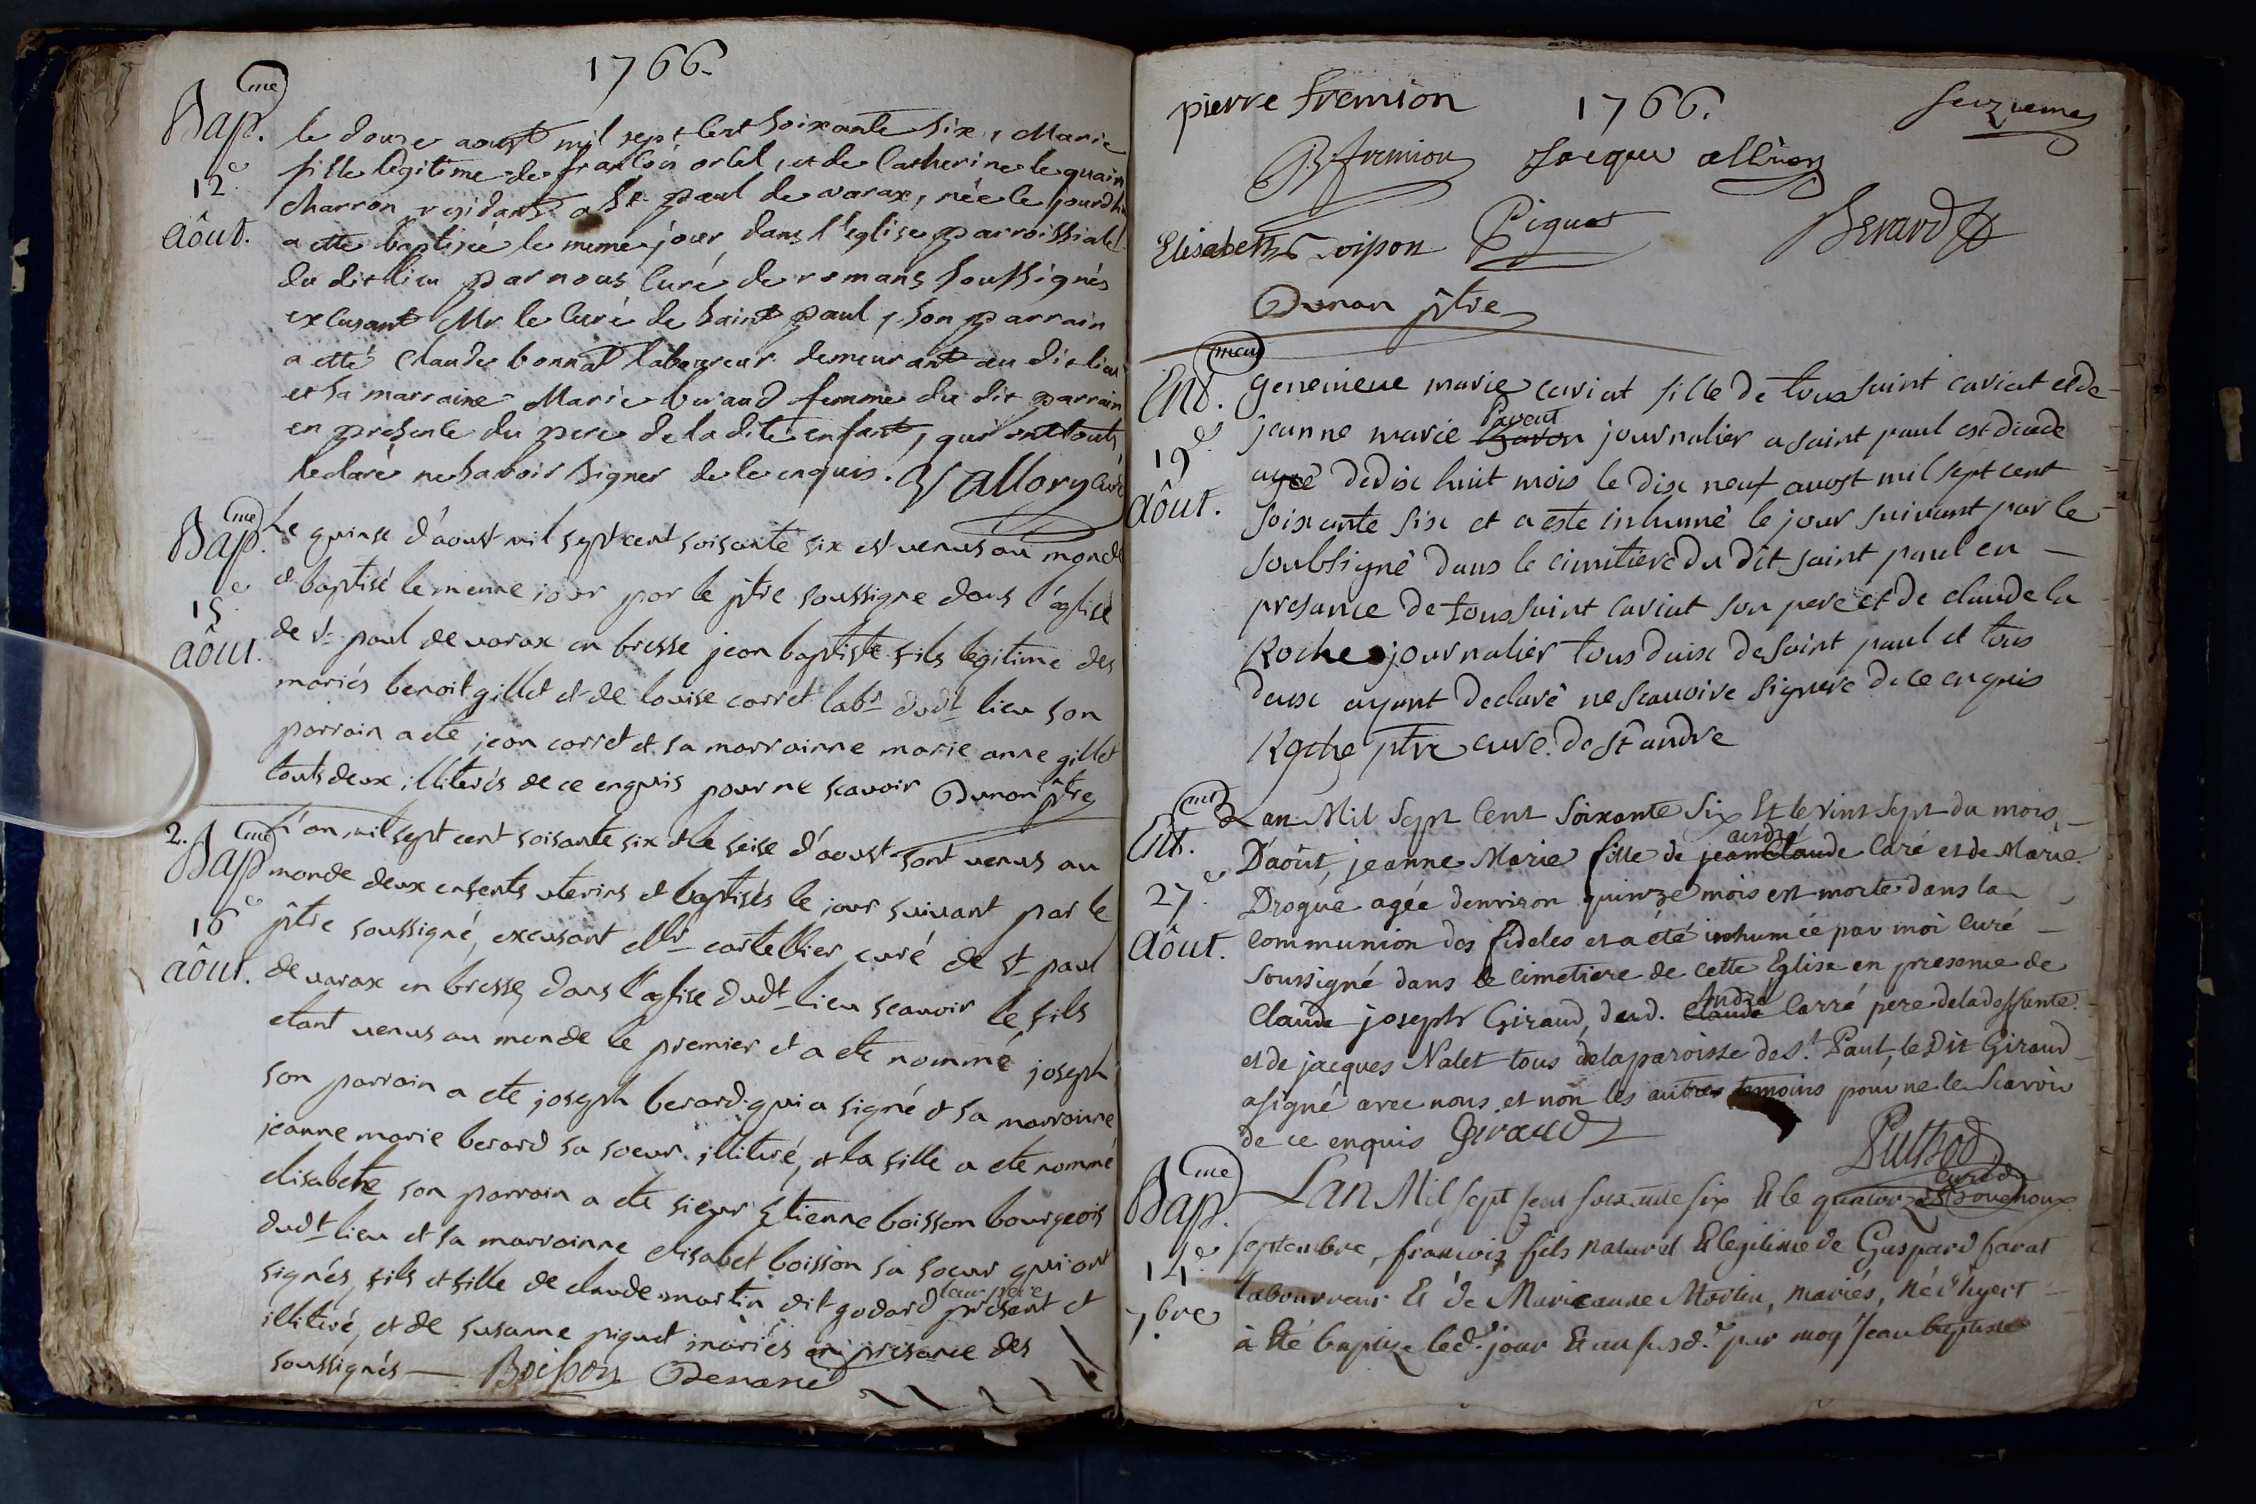 1766.
Bap.me
12e
Aôut.
le douze aoust mil sept cent soixante six, Marie
fille legitime de francois orsel, et de Catherine le quain
charron residant a St paul de varax, née le jourd'hu
a etté baptisée le meme jour dans l'église parroissiale
du dit lieu par nous Curé de romans soussignés
excusant Mr le Curé de saint paul, son parrain
a etté Claude bonnat laboureur demeurant au dit lieu
et sa marraine Marie beraud femme du dit parrain
en présence du pere de la dite enfant, qui ont touts
declaré ne savoir signer de ce enquis. Vallory Curé
Bap.me
15e
Aôut.
Le quinse d'aoust mil sept cent soisante six est venus au monde
et baptisé le meme iour par le ptre soussigne dans l'eglise
de St paul de varax en bresse jean baptiste fils legitime des
mariés benoit gillet et de louise corret labr dudt lieu son
parrain a ete jean corret et sa marrainne marie anne gillet
touts deux illiterés de ce enquis pour ne scavoir Dunan ptre
2. Bap.me
16e
Aôut.
L'an mil sept cent soisante six et le seise d'aoust sont venus au
monde deux enfents uterins et baptisés le jour suivant par le
ptre soussigné, excusant Mr cortellier curé de St paul
de varax en bresse, dans l'eglise dudt lieu scavoir le fils
etant venus au monde le premier et a ete nommé joseph
son parrain a ete joseph berard qui a signé et sa marrainne
jeanne marie berard sa soeur illiteré, et la fille a ete nommé
elisabete son parrain a ete sieur Etienne boisson bourgeois
dudt lieu et sa marrainne elisabet boisson sa soeur qui ont
signés, fils et fille de claude martin dit godard leur pere présent et
illiteré, et de susanne piquet mariés en présance des
soussignés — Boisson
pierre fremion
1766.
seizieme
P. fremion Jacque
Elisabeth Boisson Piquet Berard
Dunan ptre
Ent.ment
19e
Aôut.
genevieve marie caviat fille de toussaint caviat et de
jeanne marie Pavent journalier a saint paul est dicede
agee de dix huit mois le dix neuf avost mil sept cent
soixante six et a este inhumé le jour suivant par le
soubsigné dans le cimitiere du dit saint paul en —
presance de toussaint caviat son pere et de claude la
Roche journalier tous duix de saint paul et tous
deux ayant declaré ne scauoire signere de ce enquis
Roche ptre cure de St andre
Ent.ment
27e
Aôut.
Lan Mil Sept Cent Soixante Six Et le vint sept du mois
D'août, jeanne Marie fille de jean Claude andré Caré et de Marie
Drogué agée denviron quinze mois est morte dans la
communion des fideles et a été inhumée par moi curé —
soussigné dans le cimetiere de cette Eglise en presence de
Claude joseph Giraud, dud. Claude André Carré pere de la deffunte
et de jacques Nalet tous de la paroisse de St. Paul, le Dit Giraud
a signé avec nous et non les autres temoins pour ne le scavoir
de ce enquis Giraud
Puthod
curé de
Bap.me
14e
7bre
Lan Mil sept cent soixante six Et le quatorze
septembre, francois fils naturel Et legitime de Gaspard farat
labourreur Et de Marieanne Morlin, mariés, né d'hyert
à Eté baptize led. jour Et an susd. par moy jean baptiste